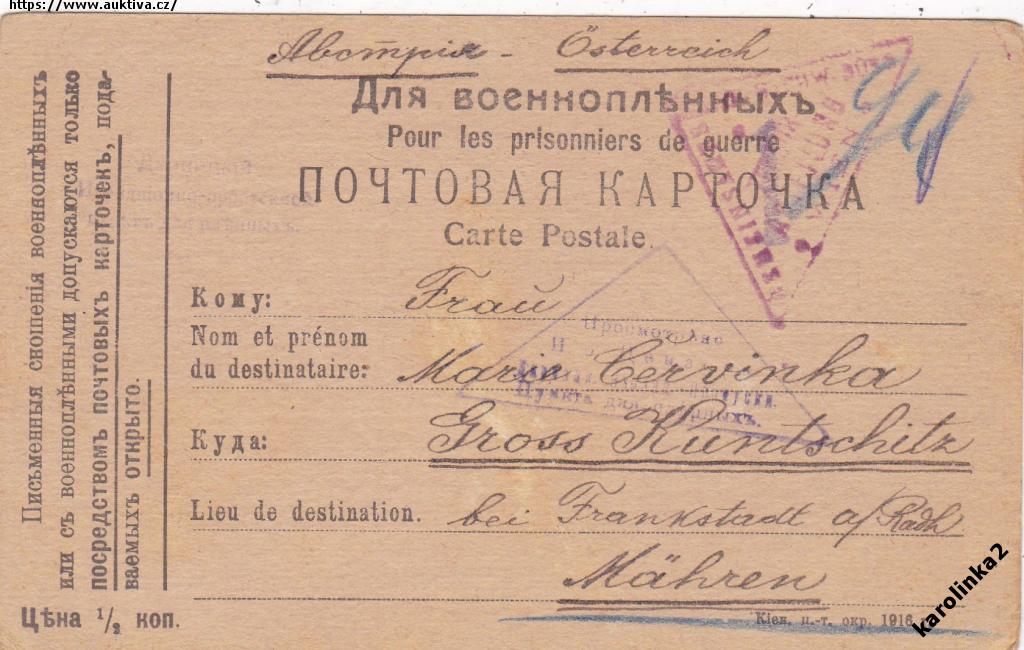 https://www.auktiva.cz/
Австрія - Österreich
Для военноплѣнныхъ
Pour les prisonniers de guerre
ПОЧТОВАЯ КАРТОЧКА
Carte Postale.
Кому: Frau
Nom et prénom
du destinataire: Marie Červinka
Куда: Gross Kuntschitz
Lieu de destination. bei Frankstadt a/Radh
Mähren
Письменныя сношенія военноплѣнныхъ
или съ военноплѣнными допускаются только
посредствомъ почтовыхъ карточекъ, пода-
ваемыхъ открыто.
Цѣна 1/2 коп.
Кіев. п.-т. окр. 1916
Просмотрѣно
Пункта для
karolinka2